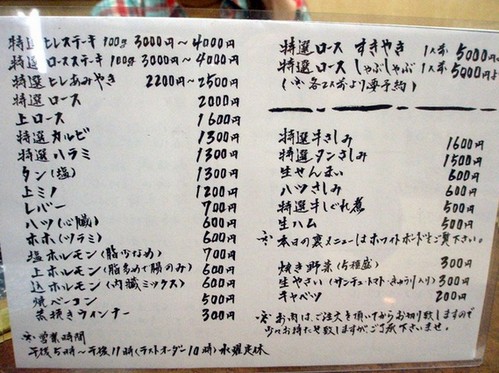 特選ヒレステーキ 100g 3000円〜4000円
特選ロースステーキ 100g 3000円〜4000円
特選ヒレあみやき 2200円〜2500円
特選ロース 2000円
上ロース 1600円
特選カルビ 1300円
特選ハラミ 1300円
タン(塩) 1300円
上ミノ 1200円
レバー 700円
ハツ(心臓) 600円
ホホ(ツラミ) 600円
塩ホルモン(脂少なめ) 700円
上ホルモン(脂多めで腸のみ) 600円
込ホルモン(内臓ミックス) 600円
焼ベーコン 500円
荒挽きウィンナー 300円
※営業時間
午後5時〜午後11時(ラストオーダー10時) 水曜定休
特選ロース すきやき 1人前 5000円
特選ロース しゃぶしゃぶ 1人前 5000円
(※各2人前より要予約)
特選牛さしみ 1600円
特選タンさしみ 1500円
生せんまい 600円
ハツさしみ 600円
特選牛しぐれ煮 500円
生ハム 500円
※本日の裏メニューはホワイトボードをご覧下さい。
焼き野菜(5種盛) 300円
生やさい(サンチュ・トマト・きゅうり入り) 300円
キャベツ 200円
※お肉はご注文を頂いてからお切り致しますので
少々お待たせ致しますがご了承下さいませ。